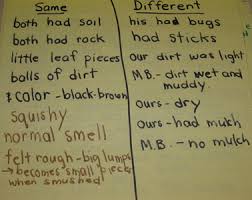 Same
both had soil
both had rock
little leaf pieces
balls of dirt
& color - black-brown
squishy
normal smell
felt rough - big lumps
→ becomes small pieces
when smushed
Different
his had bugs
had sticks
our dirt was light
M.B. - dirt wet and
muddy.
ours - dry
ours - had mulch
M.B. - no mulch